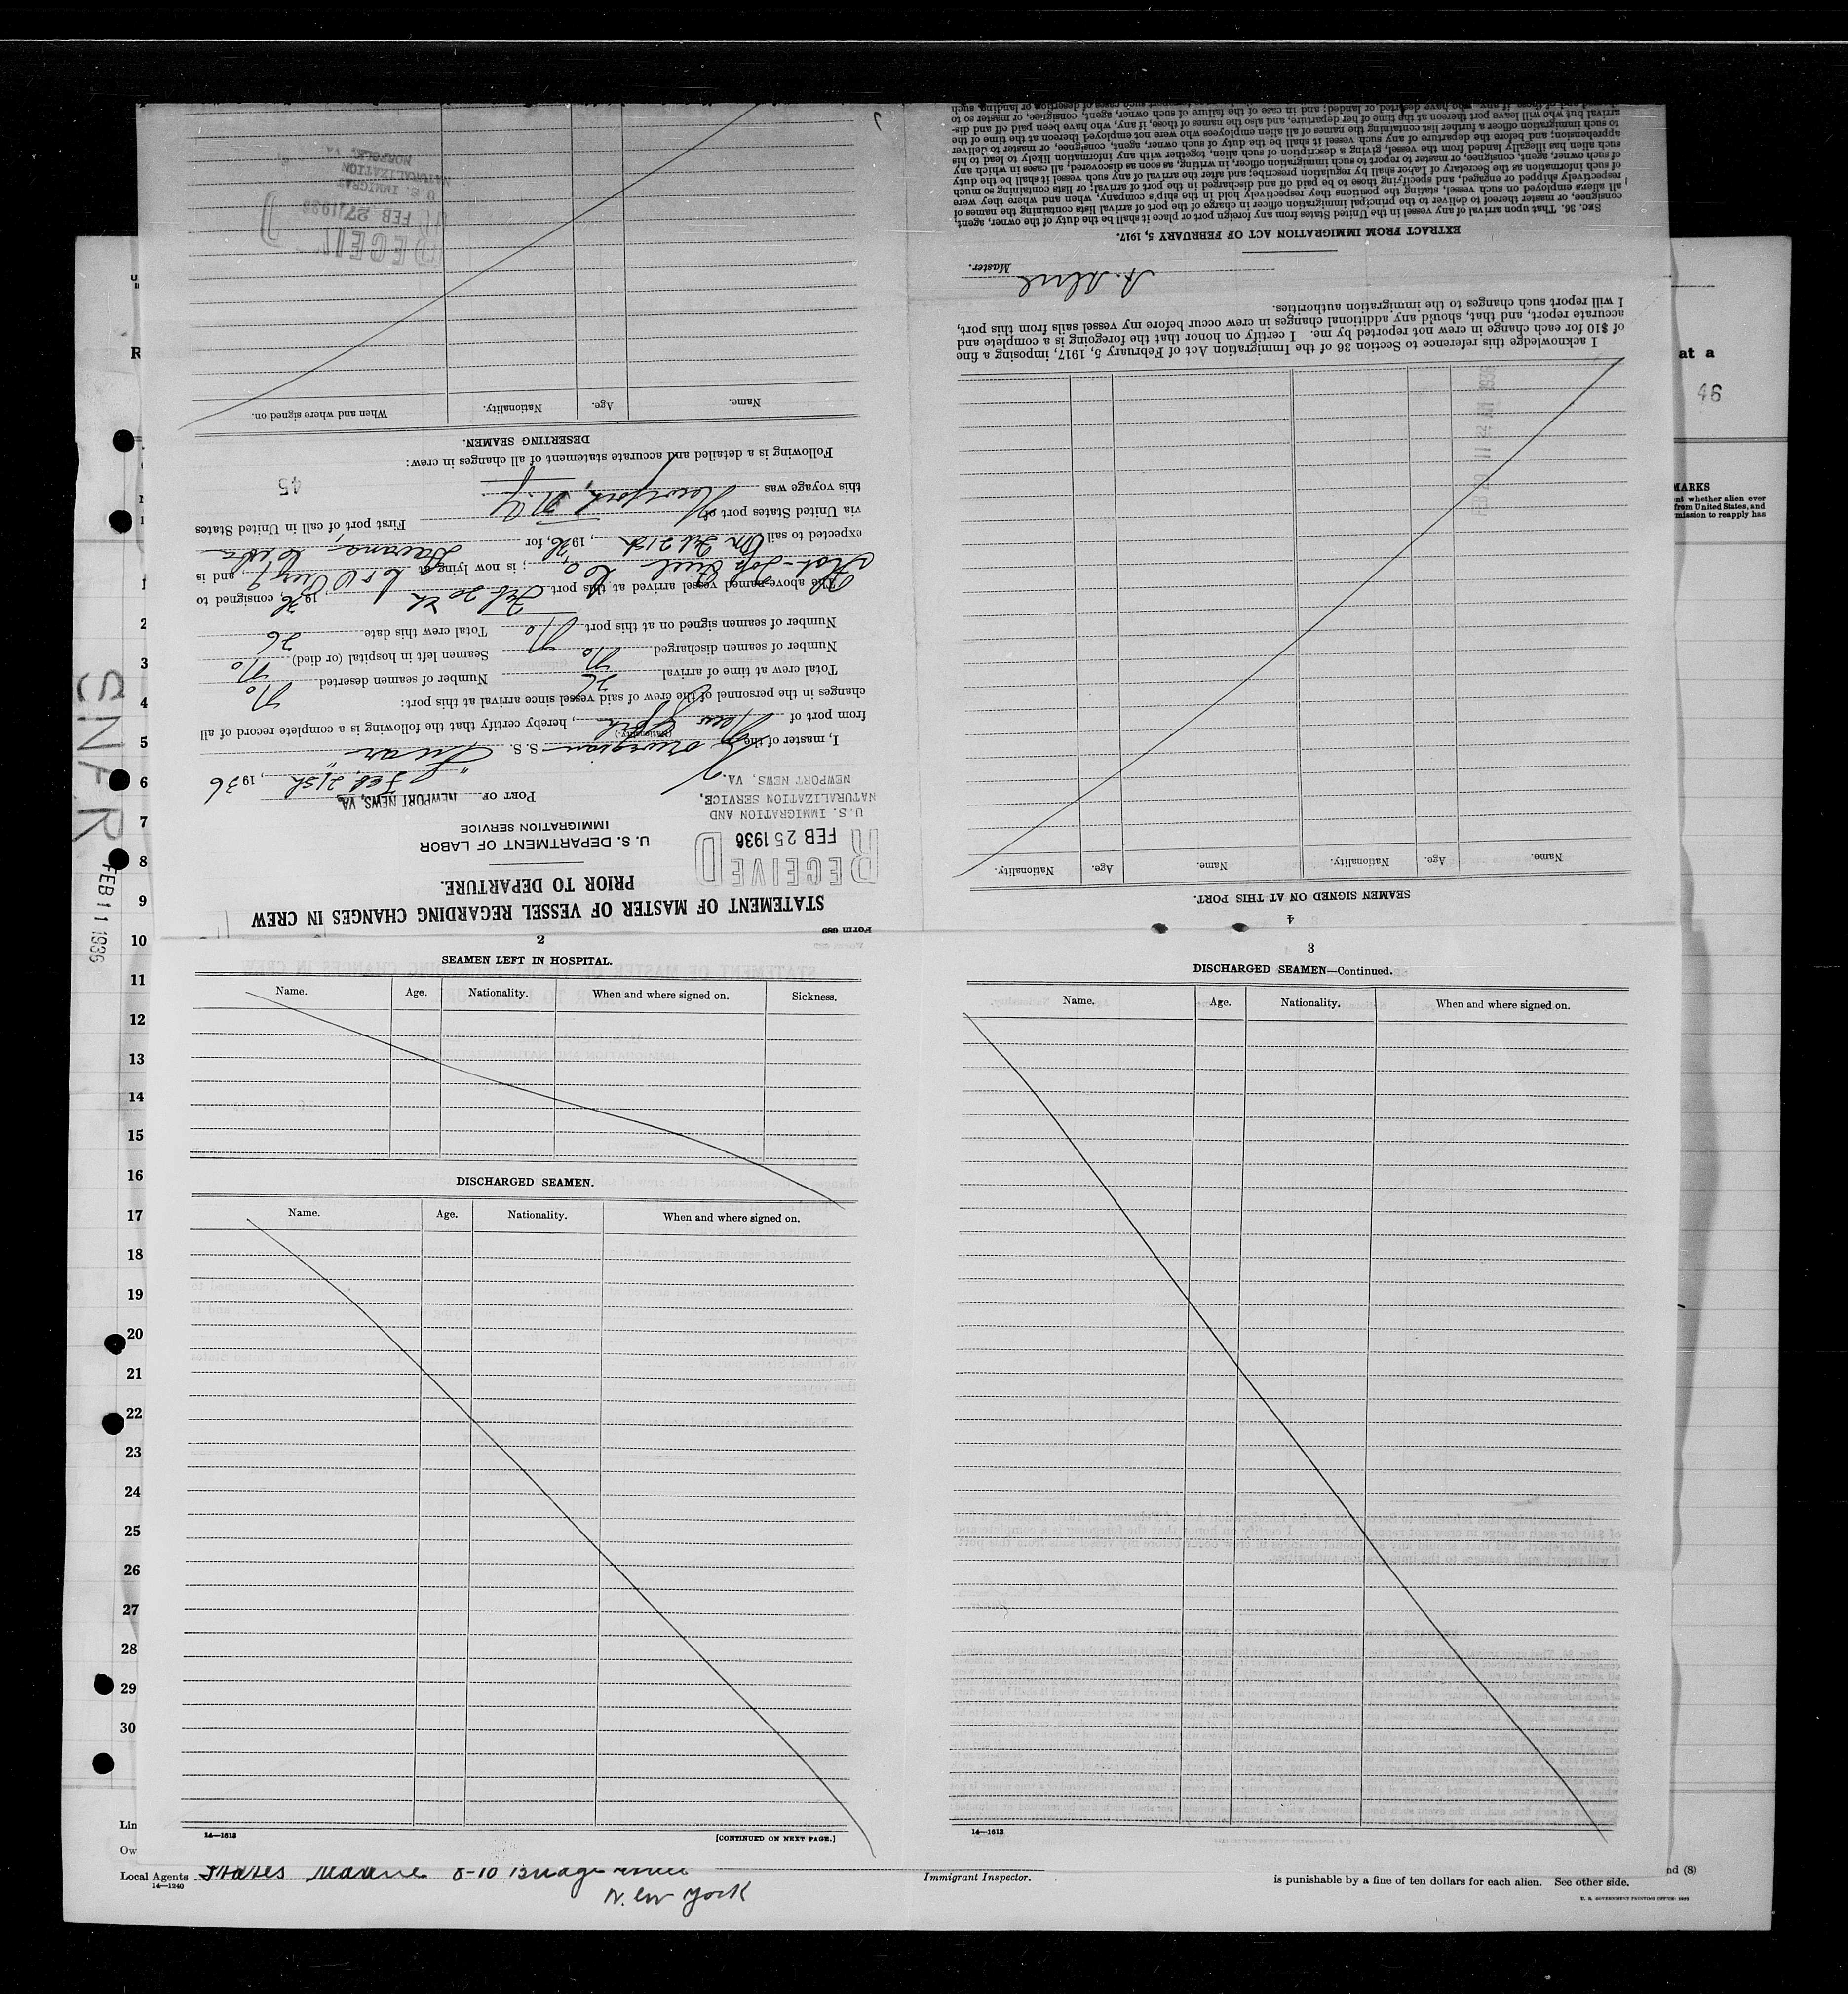 Form 689
STATEMENT OF MASTER OF VESSEL REGARDING CHANGES IN CREW
PRIOR TO DEPARTURE.
U. S. DEPARTMENT OF LABOR
IMMIGRATION SERVICE
RECEIVED
FEB 25 1936
U.S. IMMIGRATION AND
NATURALIZATION SERVICE,
NEWPORT NEWS, VA.
PORT OF NEWPORT NEWS, VA. Feb. 21st, 1936
I, master of the Norwegian S. S.
(Nationality.)
from port of New York, hereby certify that the following is a complete record of all
changes in the personnel of the crew of said vessel since arrival at this port:
Total crew at time of arrival 26 Number of seamen deserted no
Number of seamen discharged no Seamen left in hospital (or died) no
Number of seamen signed on at this port no Total crew this date 26
The above-named vessel arrived at this port Feb 20th 1936, consigned to
; is now lying at, and is
expected to sail on Feb 21st, 1936, for Havana, Cuba
via United States port of First port of call in United States
this voyage was New York, N.Y.
45
Following is a detailed and accurate statement of all changes in crew:
DESERTING SEAMEN.
Name. Age. Nationality. When and where signed on.
FEB 27 1936
U. S. IMMIGRAT
NATURALIZATION
NORFOLK, VA.
2
SEAMEN LEFT IN HOSPITAL.
Name. Age. Nationality. When and where signed on. Sickness.
DISCHARGED SEAMEN.
Name. Age. Nationality. When and where signed on.
14—1613 [CONTINUED ON NEXT PAGE.]
3
DISCHARGED SEAMEN—Continued.
Name. Age. Nationality. When and where signed on.
14—1613
4
SEAMEN SIGNED ON AT THIS PORT.
Name. Age. Nationality. Name. Age. Nationality.
I acknowledge this reference to Section 36 of the Immigration Act of February 5, 1917, imposing a fine
of $10 for each change in crew not reported by me. I certify on honor that the foregoing is a complete and
accurate report, and that, should any additional changes in crew occur before my vessel sails from this port,
I will report such changes to the immigration authorities.
Master.
EXTRACT FROM IMMIGRATION ACT OF FEBRUARY 5, 1917.
SEC. 36. That upon arrival of any vessel in the United States from any foreign port or place it shall be the duty of the owner, agent,
consignee, or master thereof to deliver to the principal immigration officer in charge of the port of arrival lists containing the names of
all aliens employed on such vessel, stating the positions they respectively hold in the ship's company, when and where they were
respectively shipped or engaged, and specifying those to be paid off and discharged in the port of arrival; or lists containing so much
of such information as the Secretary of Labor shall by regulation prescribe; and after the arrival of any such vessel it shall be the duty
of such owner, agent, consignee, or master to report to such immigration officer, in writing, as soon as discovered, all cases in which any
such alien has illegally landed from the vessel, giving a description of such alien, together with any information likely to lead to his
apprehension; and before the departure of any such vessel it shall be the duty of such owner, agent, consignee, or master to deliver
to such immigration officer a further list containing the names of all alien employees who were not employed thereon at the time of the
arrival but who will leave port thereon at the time of her departure, and also the names of those, if any, who have been paid off and dis-
R
1
2
3
4
5
6
7
8
9
10
11
12
13
14
15
16
17
18
19
20
21
22
23
24
25
26
27
28
29
30
FEB 11 1936
at a
46
MARKS
nt whether alien ever
from United States, and
mission to reapply has
Lin
Ow
Local Agents States Marine 8-10 Bridge
New York
14—1240
Immigrant Inspector.
nd (8)
is punishable by a fine of ten dollars for each alien. See other side.
U. S. GOVERNMENT PRINTING OFFICE